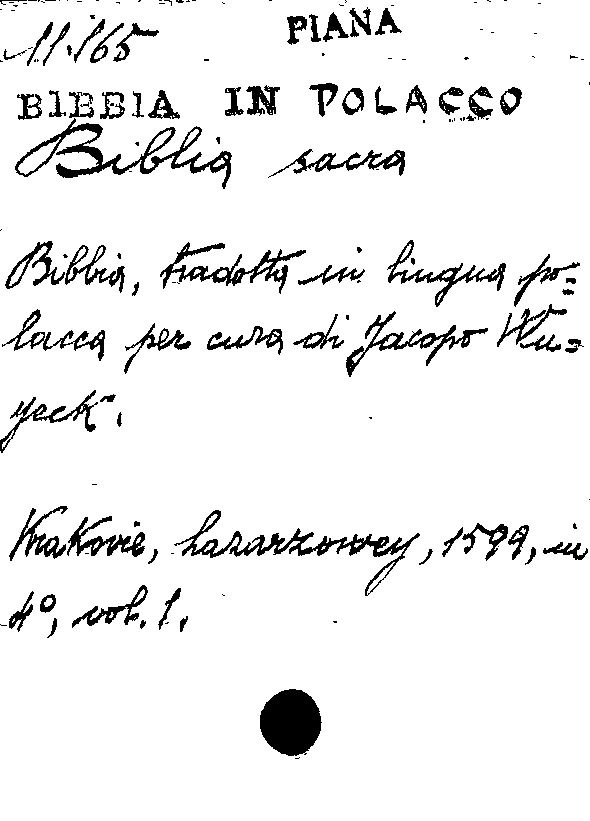 PIANA
11.165
BIBBIA IN POLACCO
Biblia sacra
Bibbia, tradotta in lingua po=
lacca per cura di Jacopo Wu=
yeck.
Krakovie, Lazarzowey, 1599, in
4°, vol. 1.